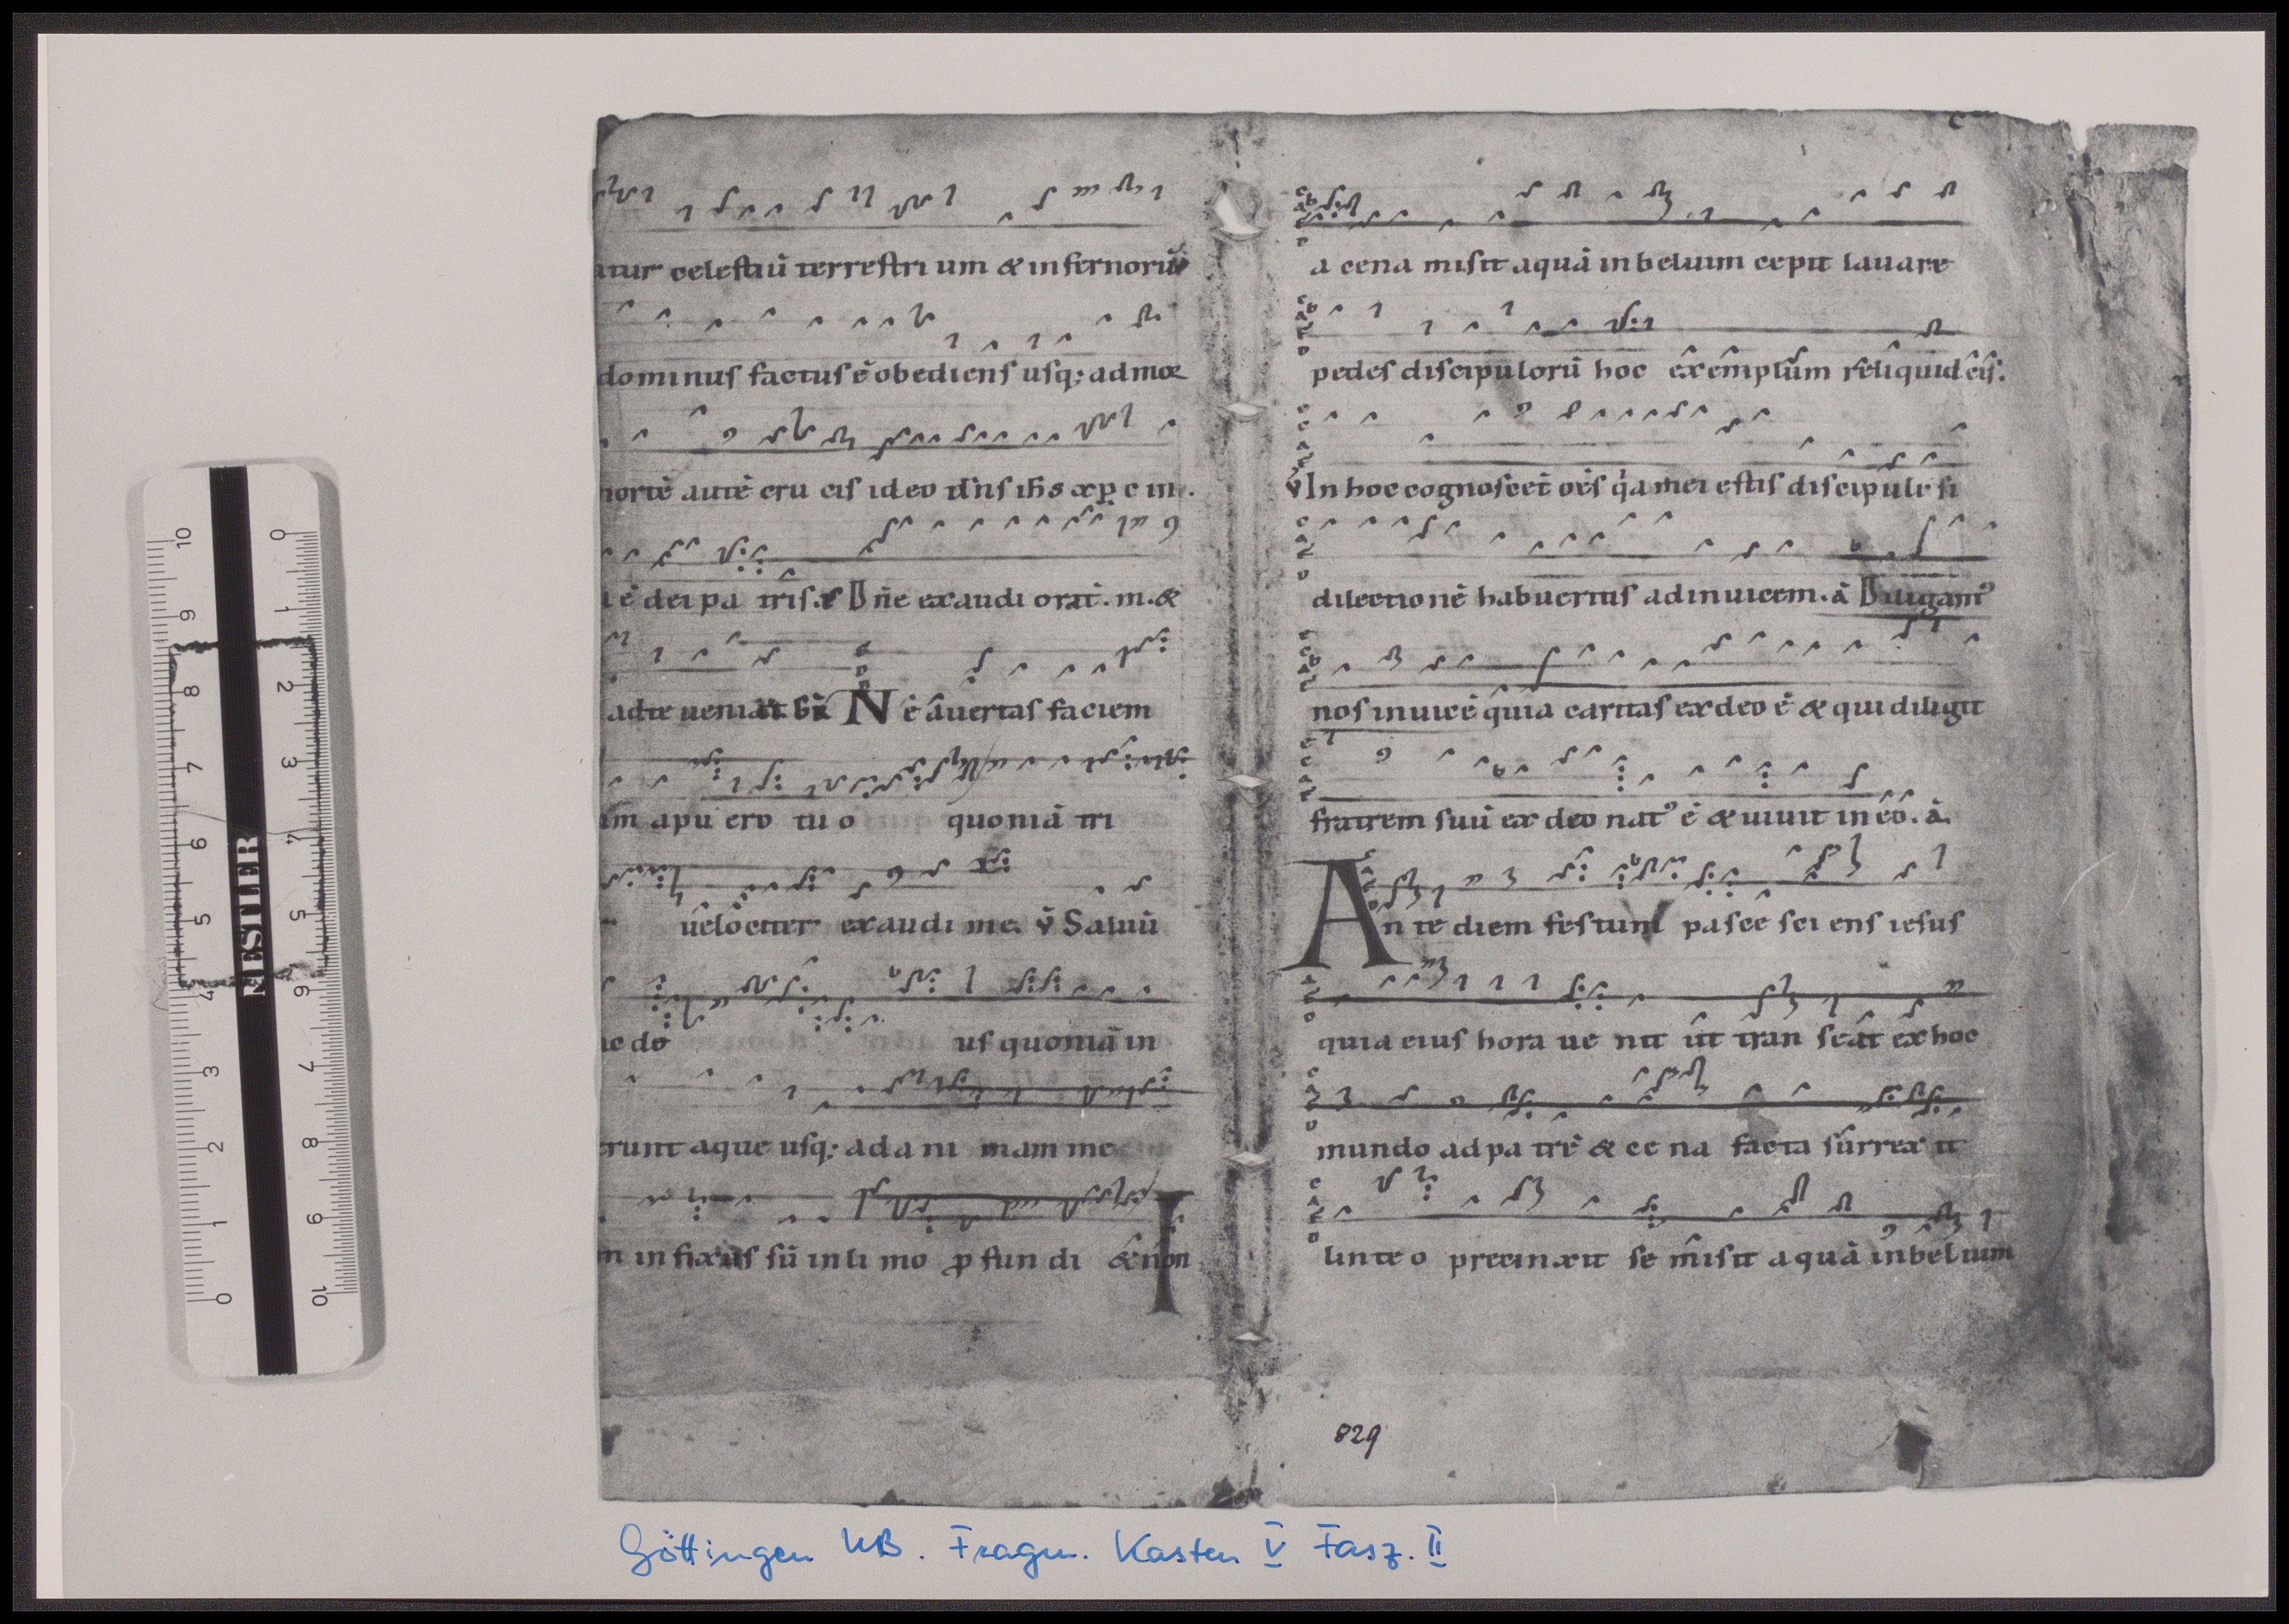 atur celestiū terrestri um & infernorū
dominus factus ē obediens usq; ad mor
mortē autē cru cis ideo dn̄s ih̄s xp̄c in
ē dei pa tris. Dn̄e exaudi orat. m. &
ad te veniat. Gr̄ Ne avertas faciem
am a pu ero tu o quoniā tri
velociter exaudi me. v̄ Saluū
me de us quoniā in
erunt aque usq; ad a ni mam me
m in fixus sū in li mo p̄ fun di & non
I
c
a cena misit aquā in beluim cepit lauare
pedes discipulorū hoc exemplum reliquid eis.
v̄ In hoc cognoscēt om̄s q̇a mei estis discipuli si
dilectionē habueritis ad inuicem. ā Diligam᾽
nos inuicē quia caritas ex deo ē & qui diligit
fratrem suū ex deo nat᾽ ē & uiuit in eo. ā.
An te diem festum pasce sci ens iesus
quia eius hora ue nit ut tran seat ex hoc
mundo ad pa trē & ce na facta surrex it
linteo precinxit se misit aquā in beluim
829
Göttingen UB. Fragm. Kasten V Fasz. II
NESTLER
10 9 8 7 6 5 4 3 2 1 0
0 1 2 3 4 5 6 7 8 9 10